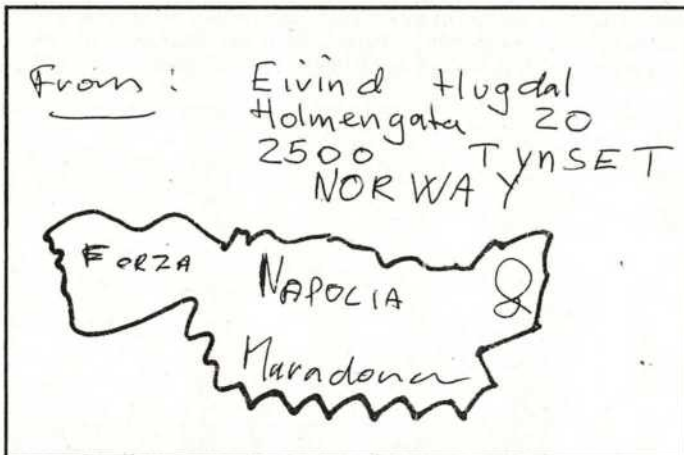 From: Eivind Hugdal
Holmengata 20
2500 TYNSET
NORWAY
FORZA NAPOLIA &
Maradona